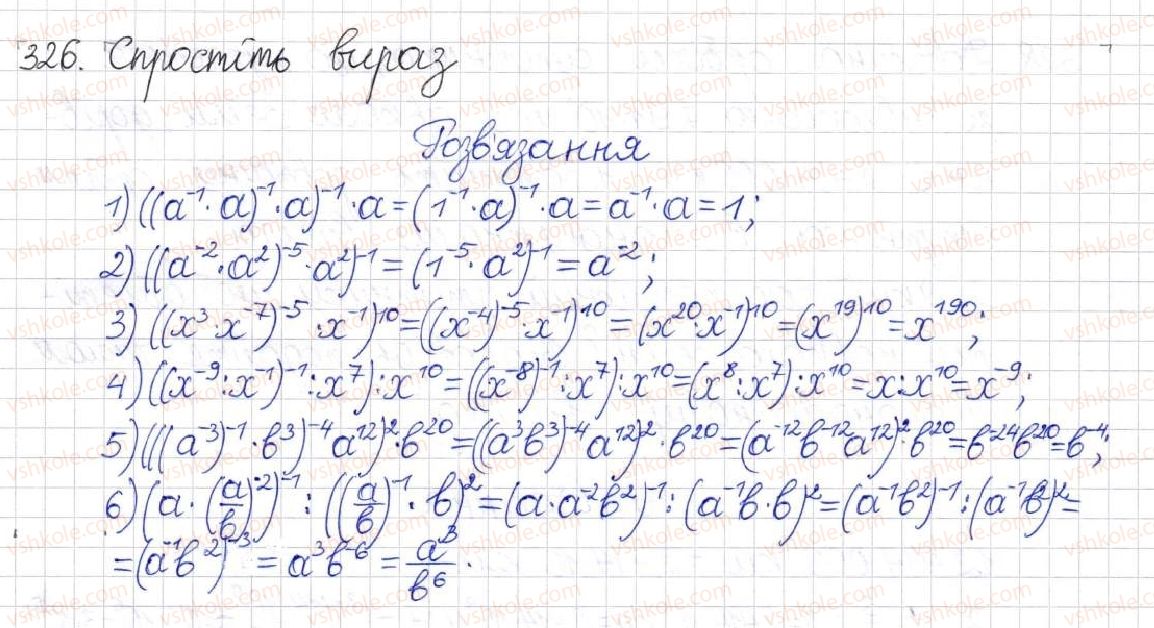 326. Спростіть вираз
Розв'язання
1) ((a⁻¹·a)⁻¹·a)⁻¹·a=(1⁻¹·a)⁻¹·a=a⁻¹·a=1;
2) ((a⁻²·a²)⁻⁵·a²)⁻¹=(1⁻⁵·a²)⁻¹=a⁻²;
3) ((x³·x⁻⁷)⁻⁵·x⁻¹)¹⁰=((x⁻⁴)⁻⁵·x⁻¹)¹⁰=(x²⁰·x⁻¹)¹⁰=(x¹⁹)¹⁰=x¹⁹⁰;
4) ((x⁻⁹:x⁻¹)⁻¹:x⁷):x¹⁰=((x⁻⁸)⁻¹:x⁷):x¹⁰=(x⁸:x⁷):x¹⁰=x:x¹⁰=x⁻⁹;
5) (((a⁻³)⁻¹·b³)⁻⁴a¹²)²·b²⁰=((a³b³)⁻⁴a¹²)²·b²⁰=(a⁻¹²b⁻¹²a¹²)²·b²⁰=b⁻²⁴b²⁰=b⁻⁴;
6) (a·(a/b)⁻²)⁻¹:((a/b)⁻¹·b)²=(a·a⁻²b²)⁻¹:(a⁻¹b·b)²=(a⁻¹b²)⁻¹:(a⁻¹b²)²=
=(a⁻¹b²)⁻³=a³b⁻⁶=a³/b⁶.
vshkole.com